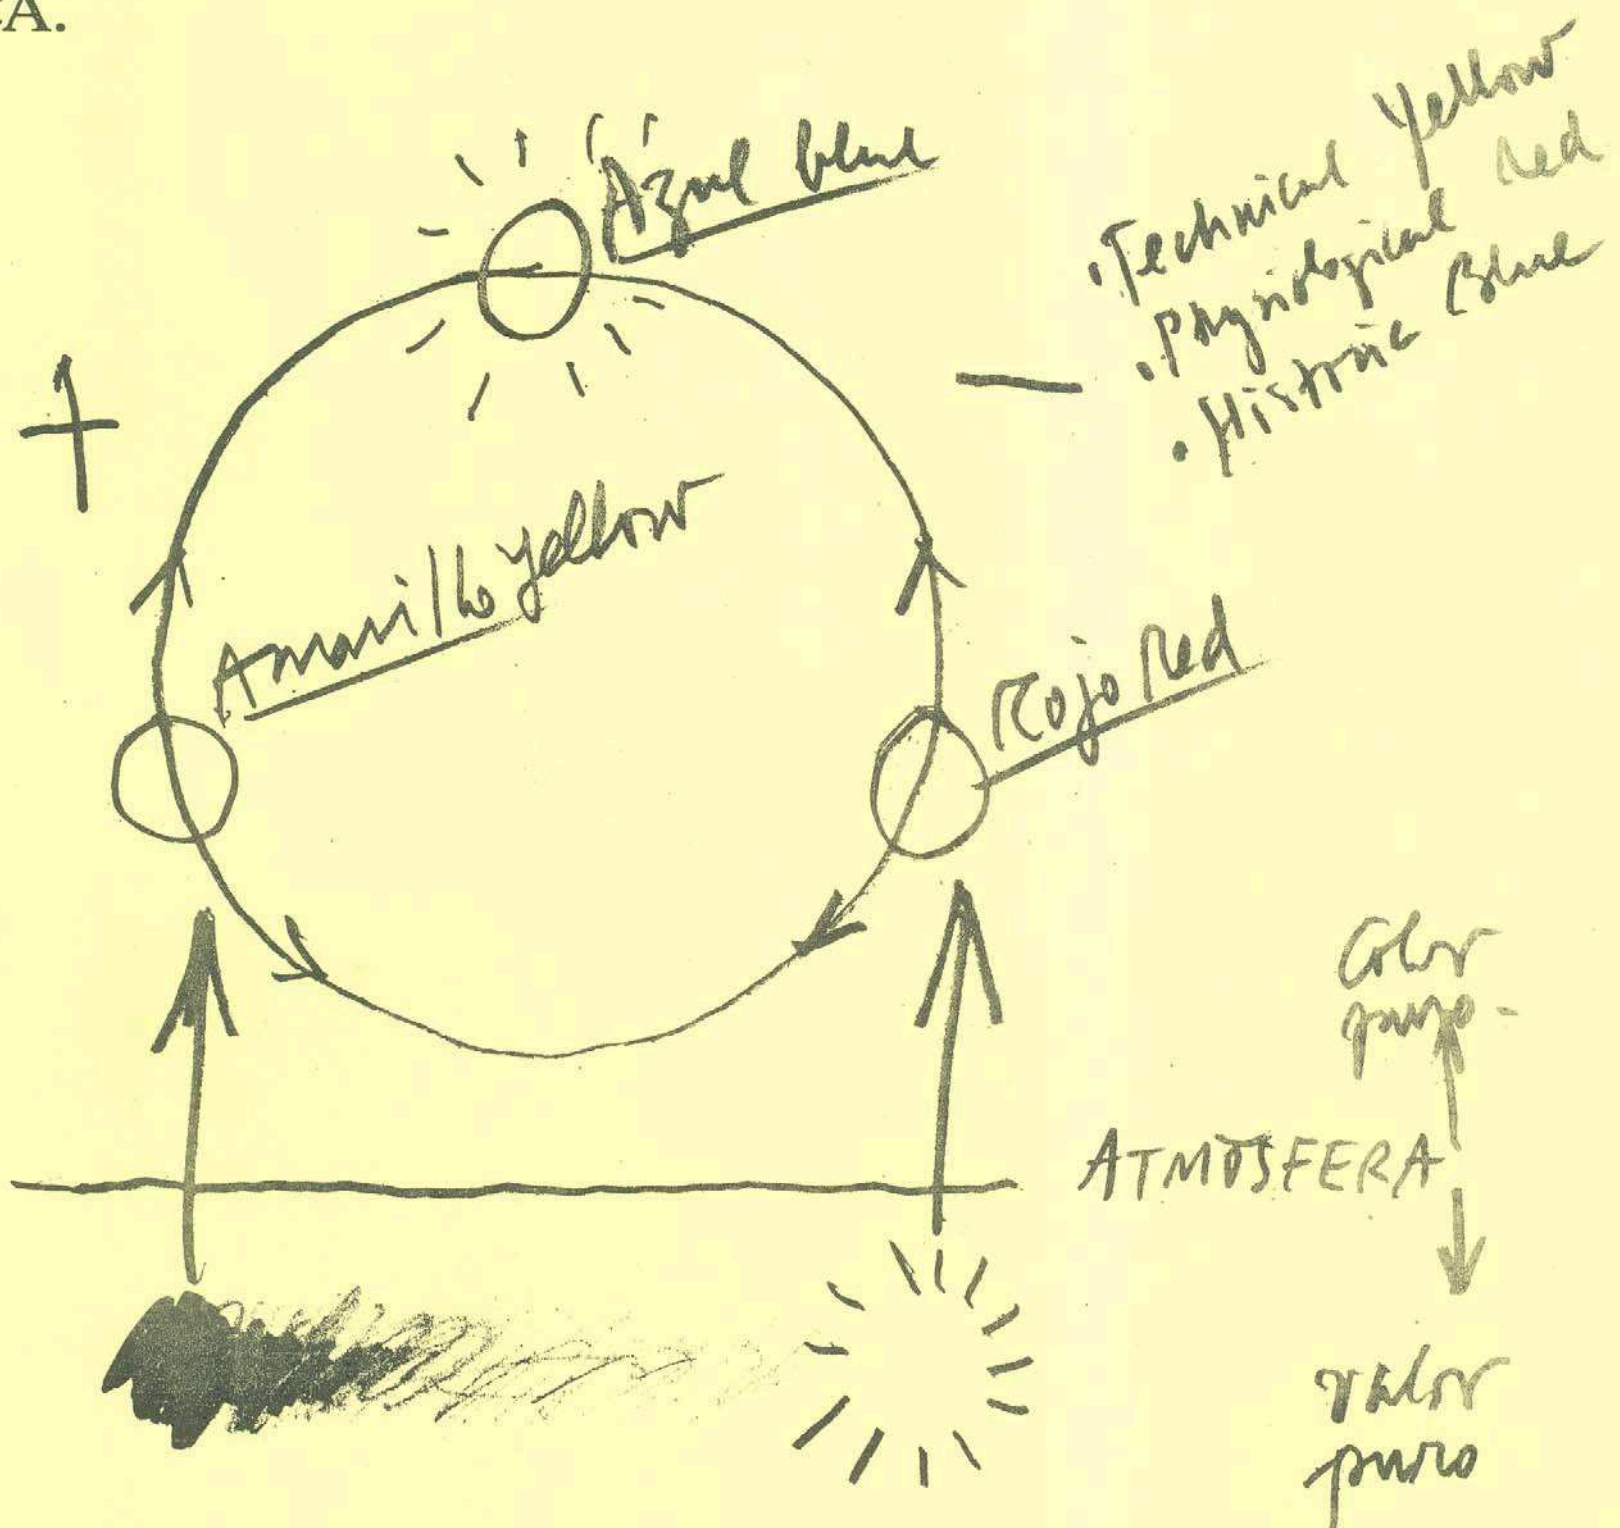 A.
Azul blue
• Technical Yellow
• Physiological Red
• Historic Blue
+
—
Amarillo Yellow
Rojo Red
Color
puro -
ATMÓSFERA
valor
puro